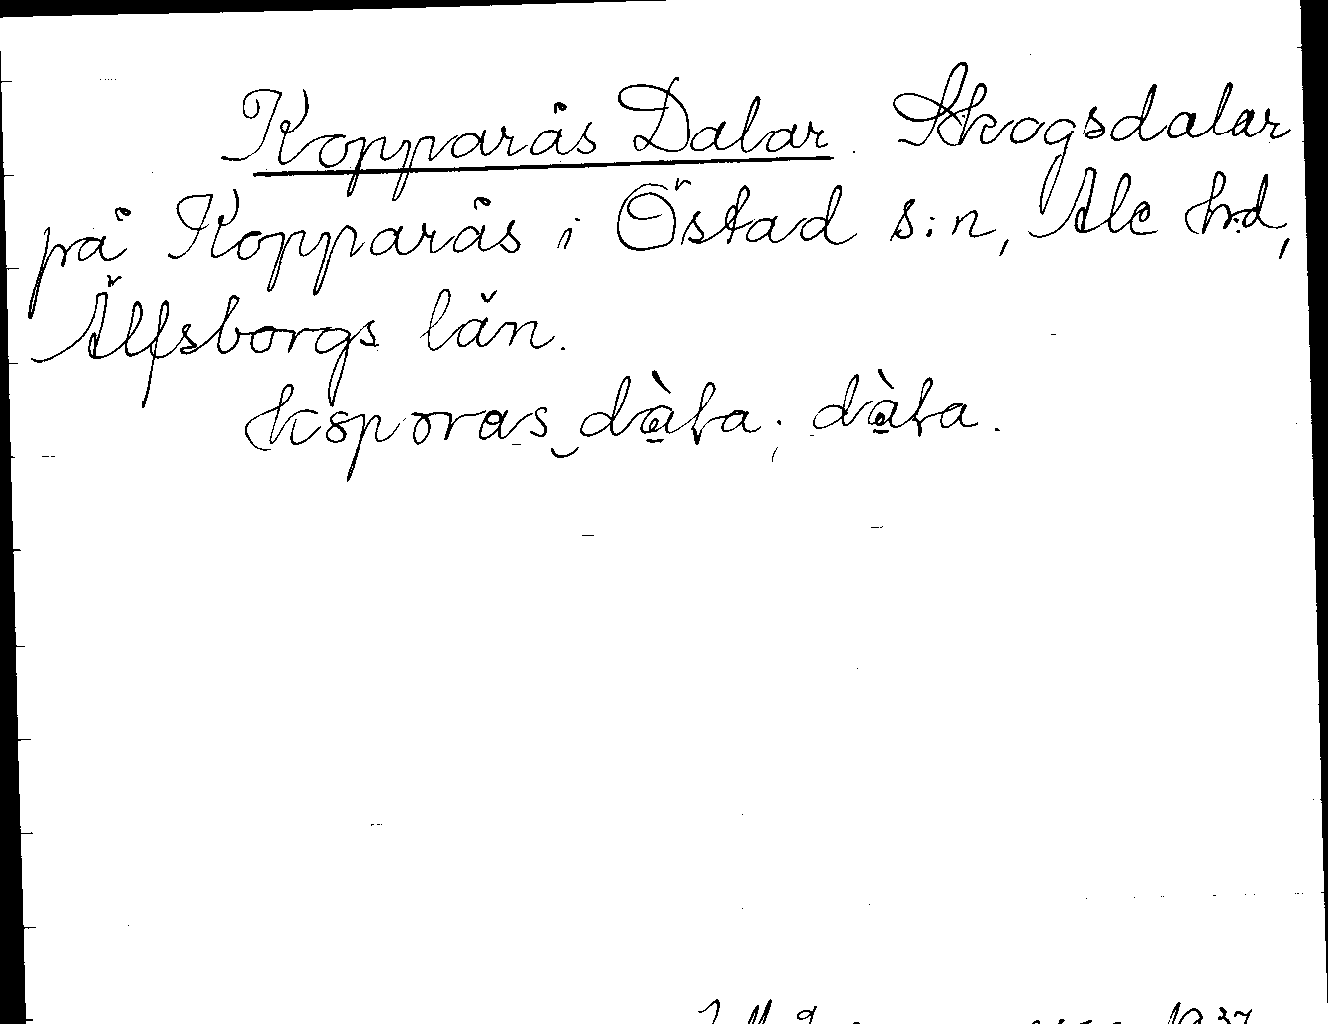 Kopparås Dalar. Skogsdalar
på Kopparås i Östad s:n, Ale h:d,
Älfsborgs län.
koporas dàla; dàla.
1937